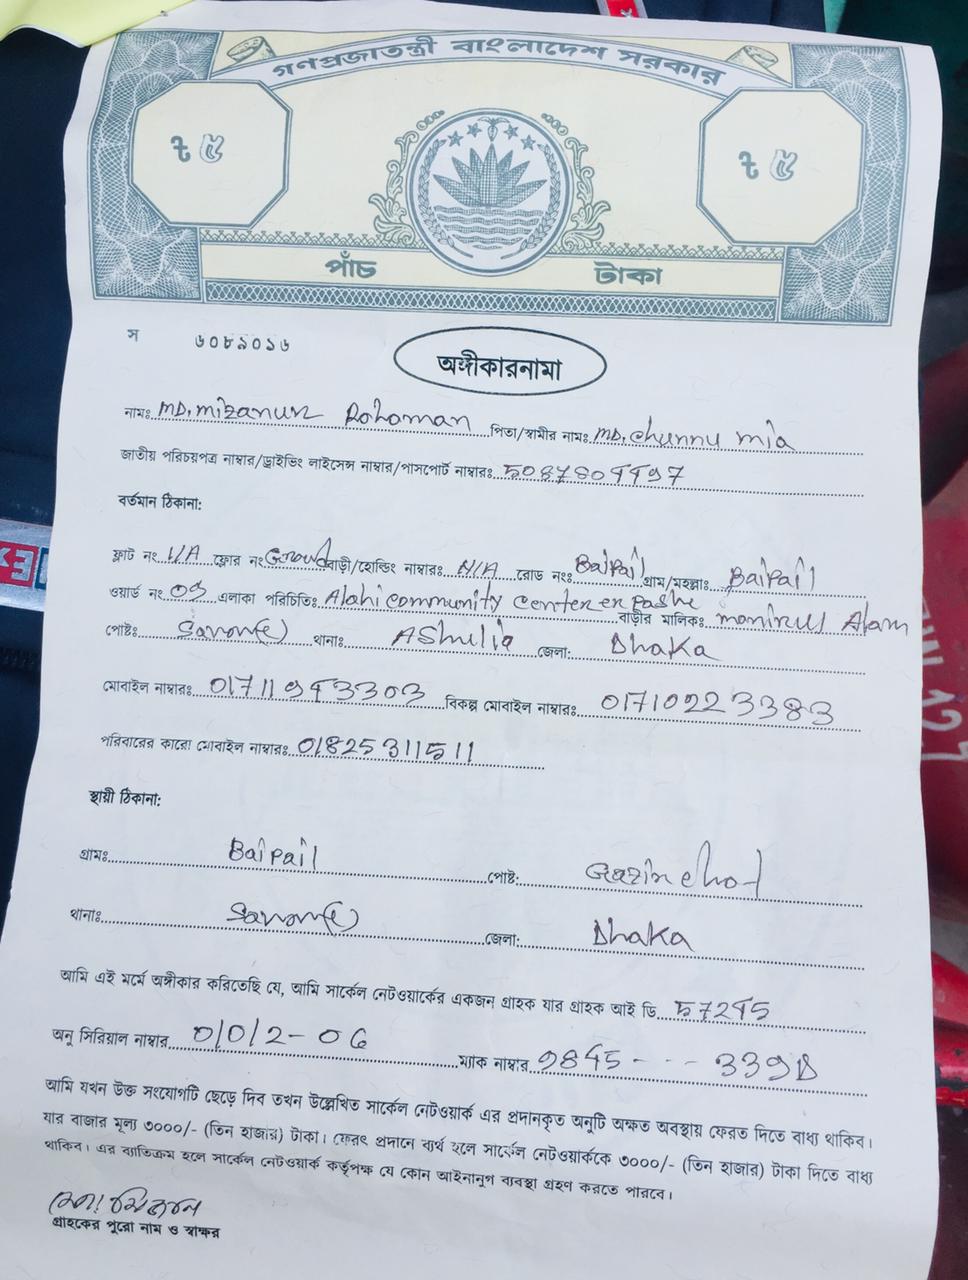 গণপ্রজাতন্ত্রী বাংলাদেশ সরকার
৳ ৫ ৳ ৫
পাঁচ টাকা
স ৬০৮৯০১৬
অঙ্গীকারনামা
নামঃ MD. mizanur Rohoman পিতা/স্বামীর নামঃ MD. chunnu mia
জাতীয় পরিচয়পত্র নাম্বার/ড্রাইভিং লাইসেন্স নাম্বার/পাসপোর্ট নাম্বারঃ
বর্তমান ঠিকানা:
ফ্লাট নং ফ্লোর নং Ground বাড়ী/হোল্ডিং নাম্বারঃ N/A রোড নংঃ Baipail গ্রাম/মহল্লাঃ Baipail
ওয়ার্ড নং এলাকা পরিচিতিঃ Alahi community center er pashe বাড়ীর মালিকঃ monirul Alam
পোষ্টঃ থানাঃ AShulia জেলা: Dhaka
মোবাইল নাম্বারঃ 01711943303 বিকল্প মোবাইল নাম্বারঃ 01710223383
পরিবারের কারো মোবাইল নাম্বারঃ 01825311511
স্থায়ী ঠিকানা:
গ্রামঃ Baipail পোষ্ট:
থানাঃ জেলা: Dhaka
আমি এই মর্মে অঙ্গীকার করিতেছি যে, আমি সার্কেল নেটওয়ার্কের একজন গ্রাহক যার গ্রাহক আই ডি
অনু সিরিয়াল নাম্বার ম্যাক নাম্বার
আমি যখন উক্ত সংযোগটি ছেড়ে দিব তখন উল্লেখিত সার্কেল নেটওয়ার্ক এর প্রদানকৃত অনুটি অক্ষত অবস্থায় ফেরত দিতে বাধ্য থাকিব।
যার বাজার মূল্য ৩০০০/- (তিন হাজার) টাকা। ফেরৎ প্রদানে ব্যর্থ হলে সার্কেল নেটওয়ার্ককে ৩০০০/- (তিন হাজার) টাকা দিতে বাধ্য
থাকিব। এর ব্যতিক্রম হলে সার্কেল নেটওয়ার্ক কর্তৃপক্ষ যে কোন আইনানুগ ব্যবস্থা গ্রহণ করতে পারবে।
মোঃ মিজান
গ্রাহকের পুরো নাম ও স্বাক্ষর